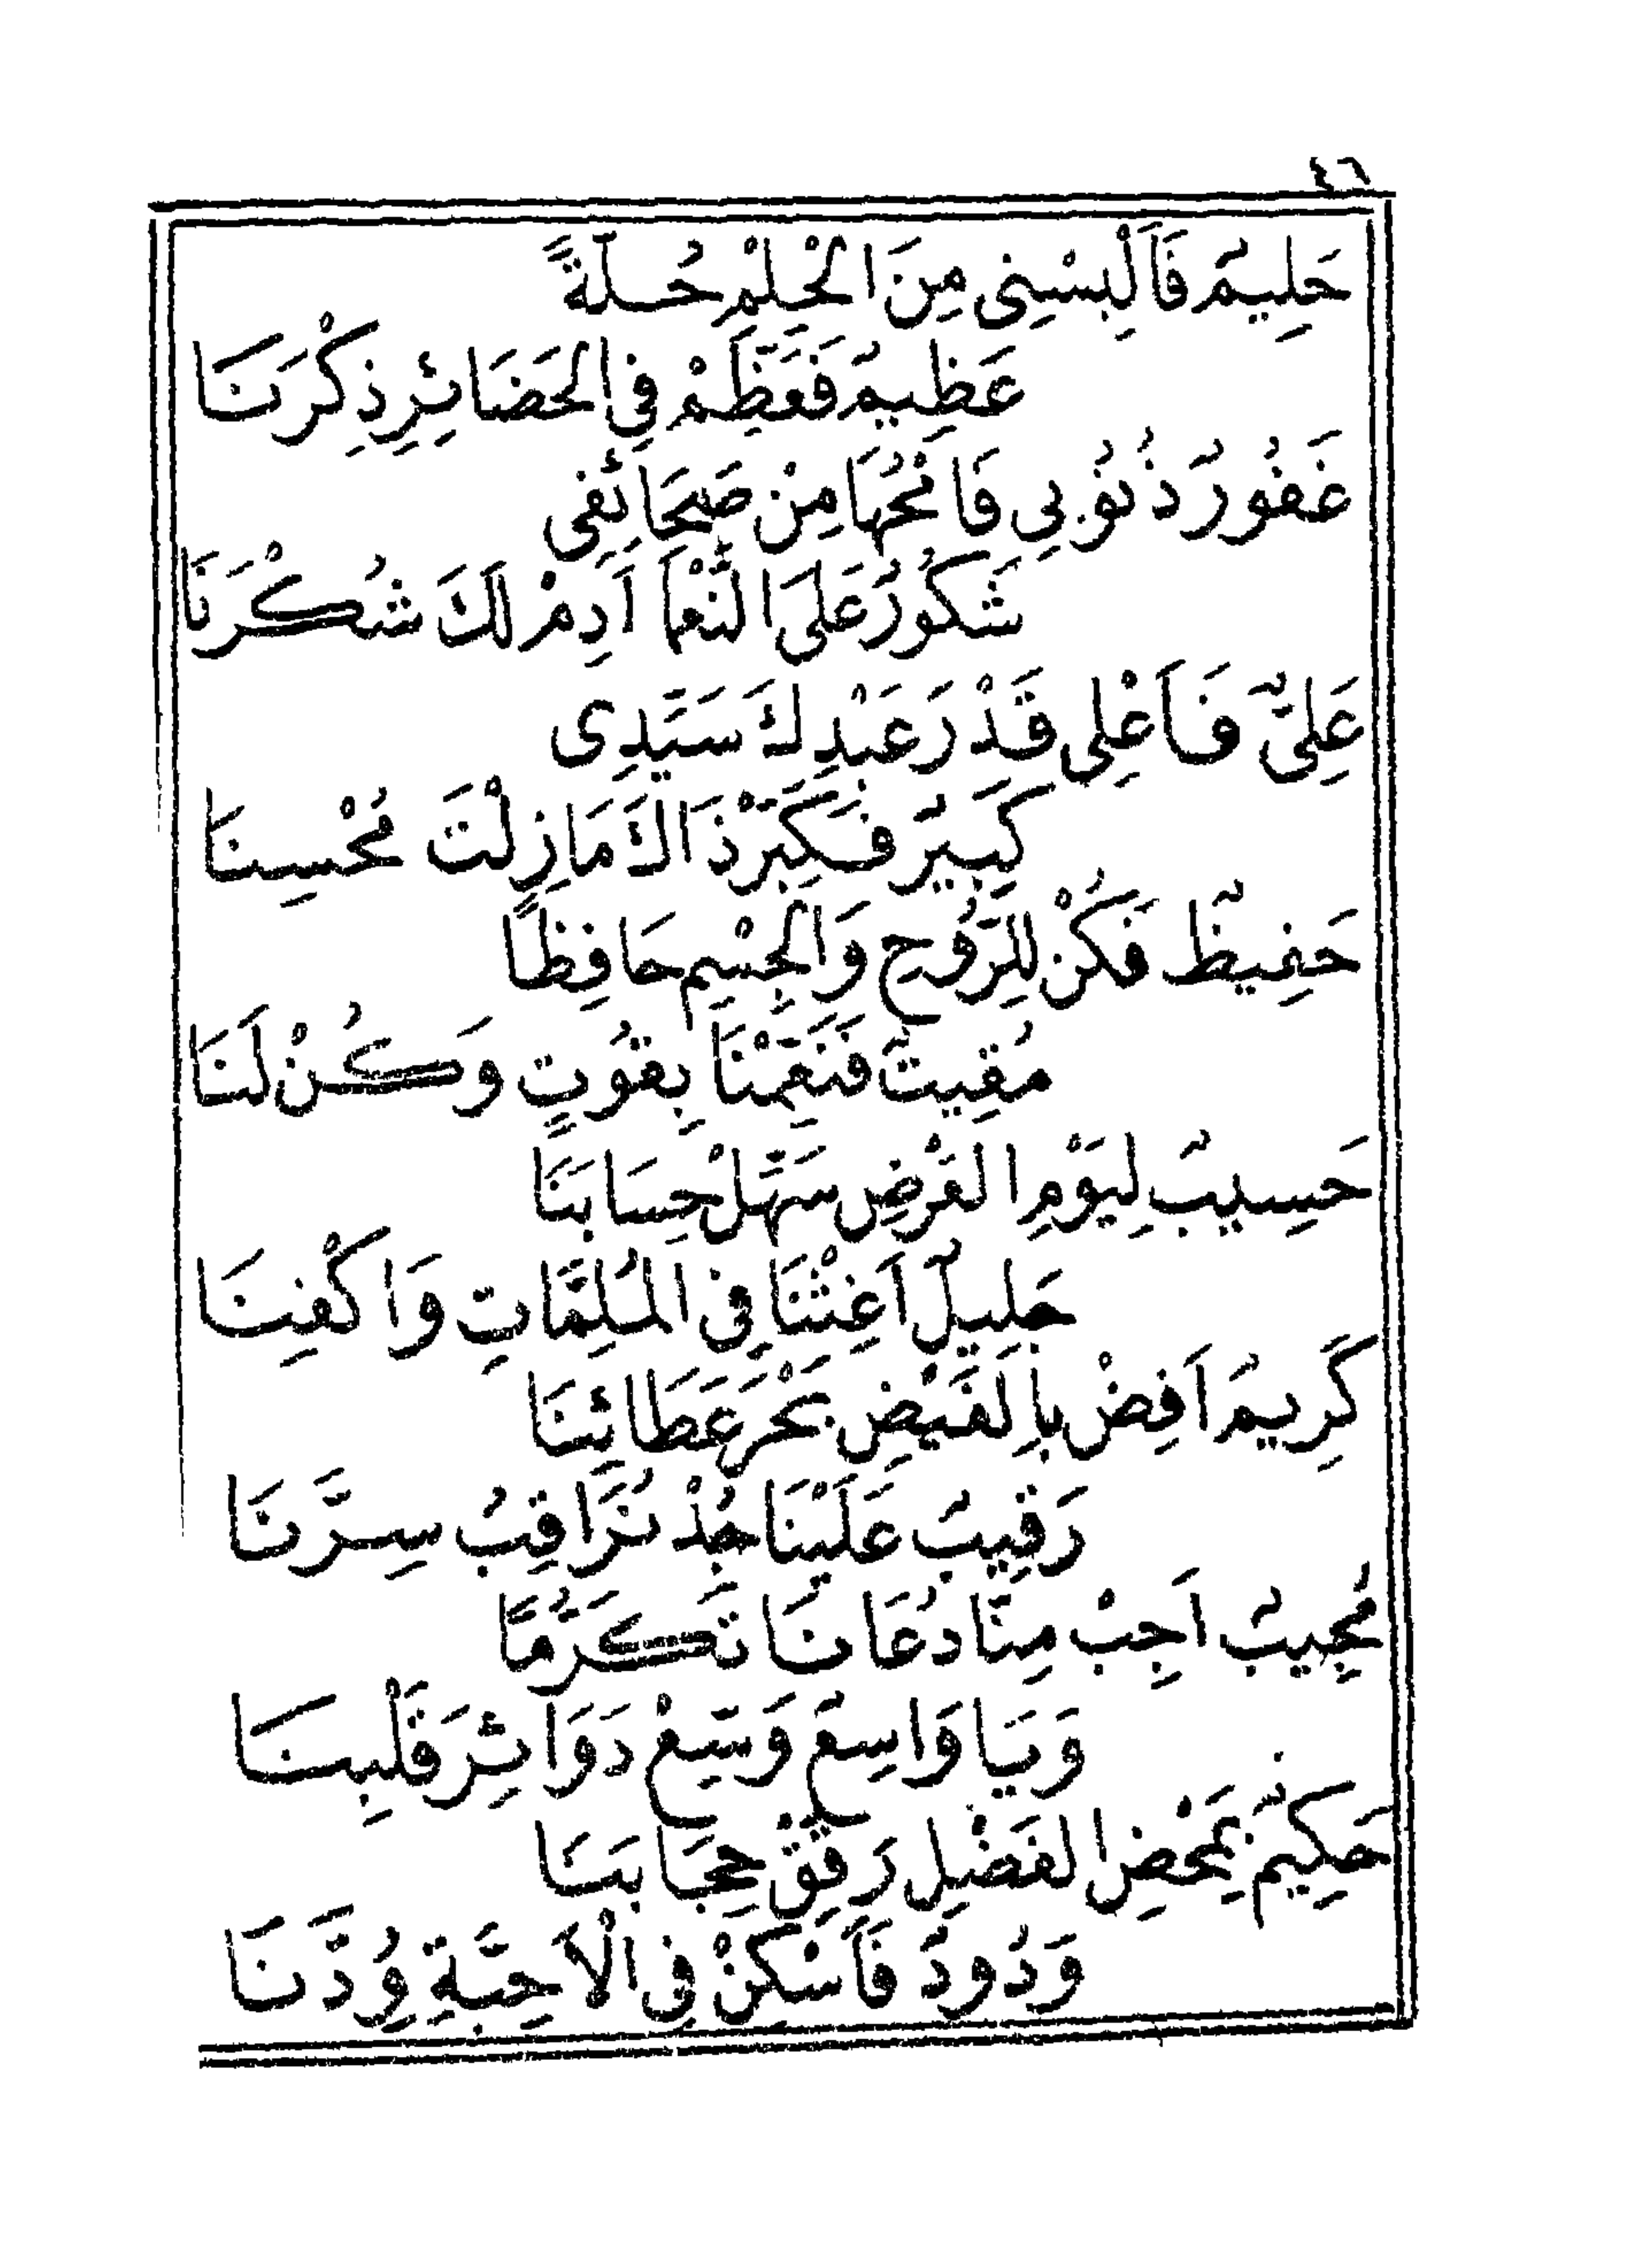 ٤٦
حَلِيمٌ فَاَلْبِسْنِى مِنَ الْحِلْمِ حُلَّةً
عَظِيمٌ فَعَظِّمْ فِى الحَضَائِرِ ذِكْرَنَا
غَفُورٌ ذُنُوبِى فَامْحُهَا مِنْ صَحَائِفِى
شَكُورٌ عَلَى النَّعْمَا اَدِمْ لَكَ شُكْرَنَا
عَلِىٌّ فَاَعْلِى قَدْرَ عَبْدِكَ سَيِّدِى
كَبِيرٌ فَكَبِّرْ ذَاكَ مَازِلْتَ مُحْسِنَا
حَفِيظٌ فَكُنْ لِلرُّوحِ وَالْجِسْمِ حَافِظًا
مُقِيتٌ فَنَعِّمْنَا بِقُوتٍ وَكُنْ لَنَا
حَسِيبٌ لِيَوْمِ العَرْضِ سَهِّلْ حِسَابَنَا
جَلِيلٌ اَغِثْنَا فِى المُلِمَّاتِ وَاكْفِنَا
كَرِيمٌ اَفِضْ بِالفَيْضِ بَحْرَ عَطَائِنَا
رَقِيبٌ عَلَيْنَا جُدْ نُرَاقِبُ سِرَّنَا
مُجِيبٌ اَجِبْ مِنَّا دُعَانَا تَكَرُّمًا
وَيَا وَاسِعٌ وَسِّعْ دَوَائِرَ قَلْبِنَا
حَكِيمٌ بِمَحْضِ الفَضْلِ رَقِّقْ حِجَابَنَا
وَدُودٌ فَاَسْكِنْ فِى الْاَحِبَّةِ وُدَّنَا